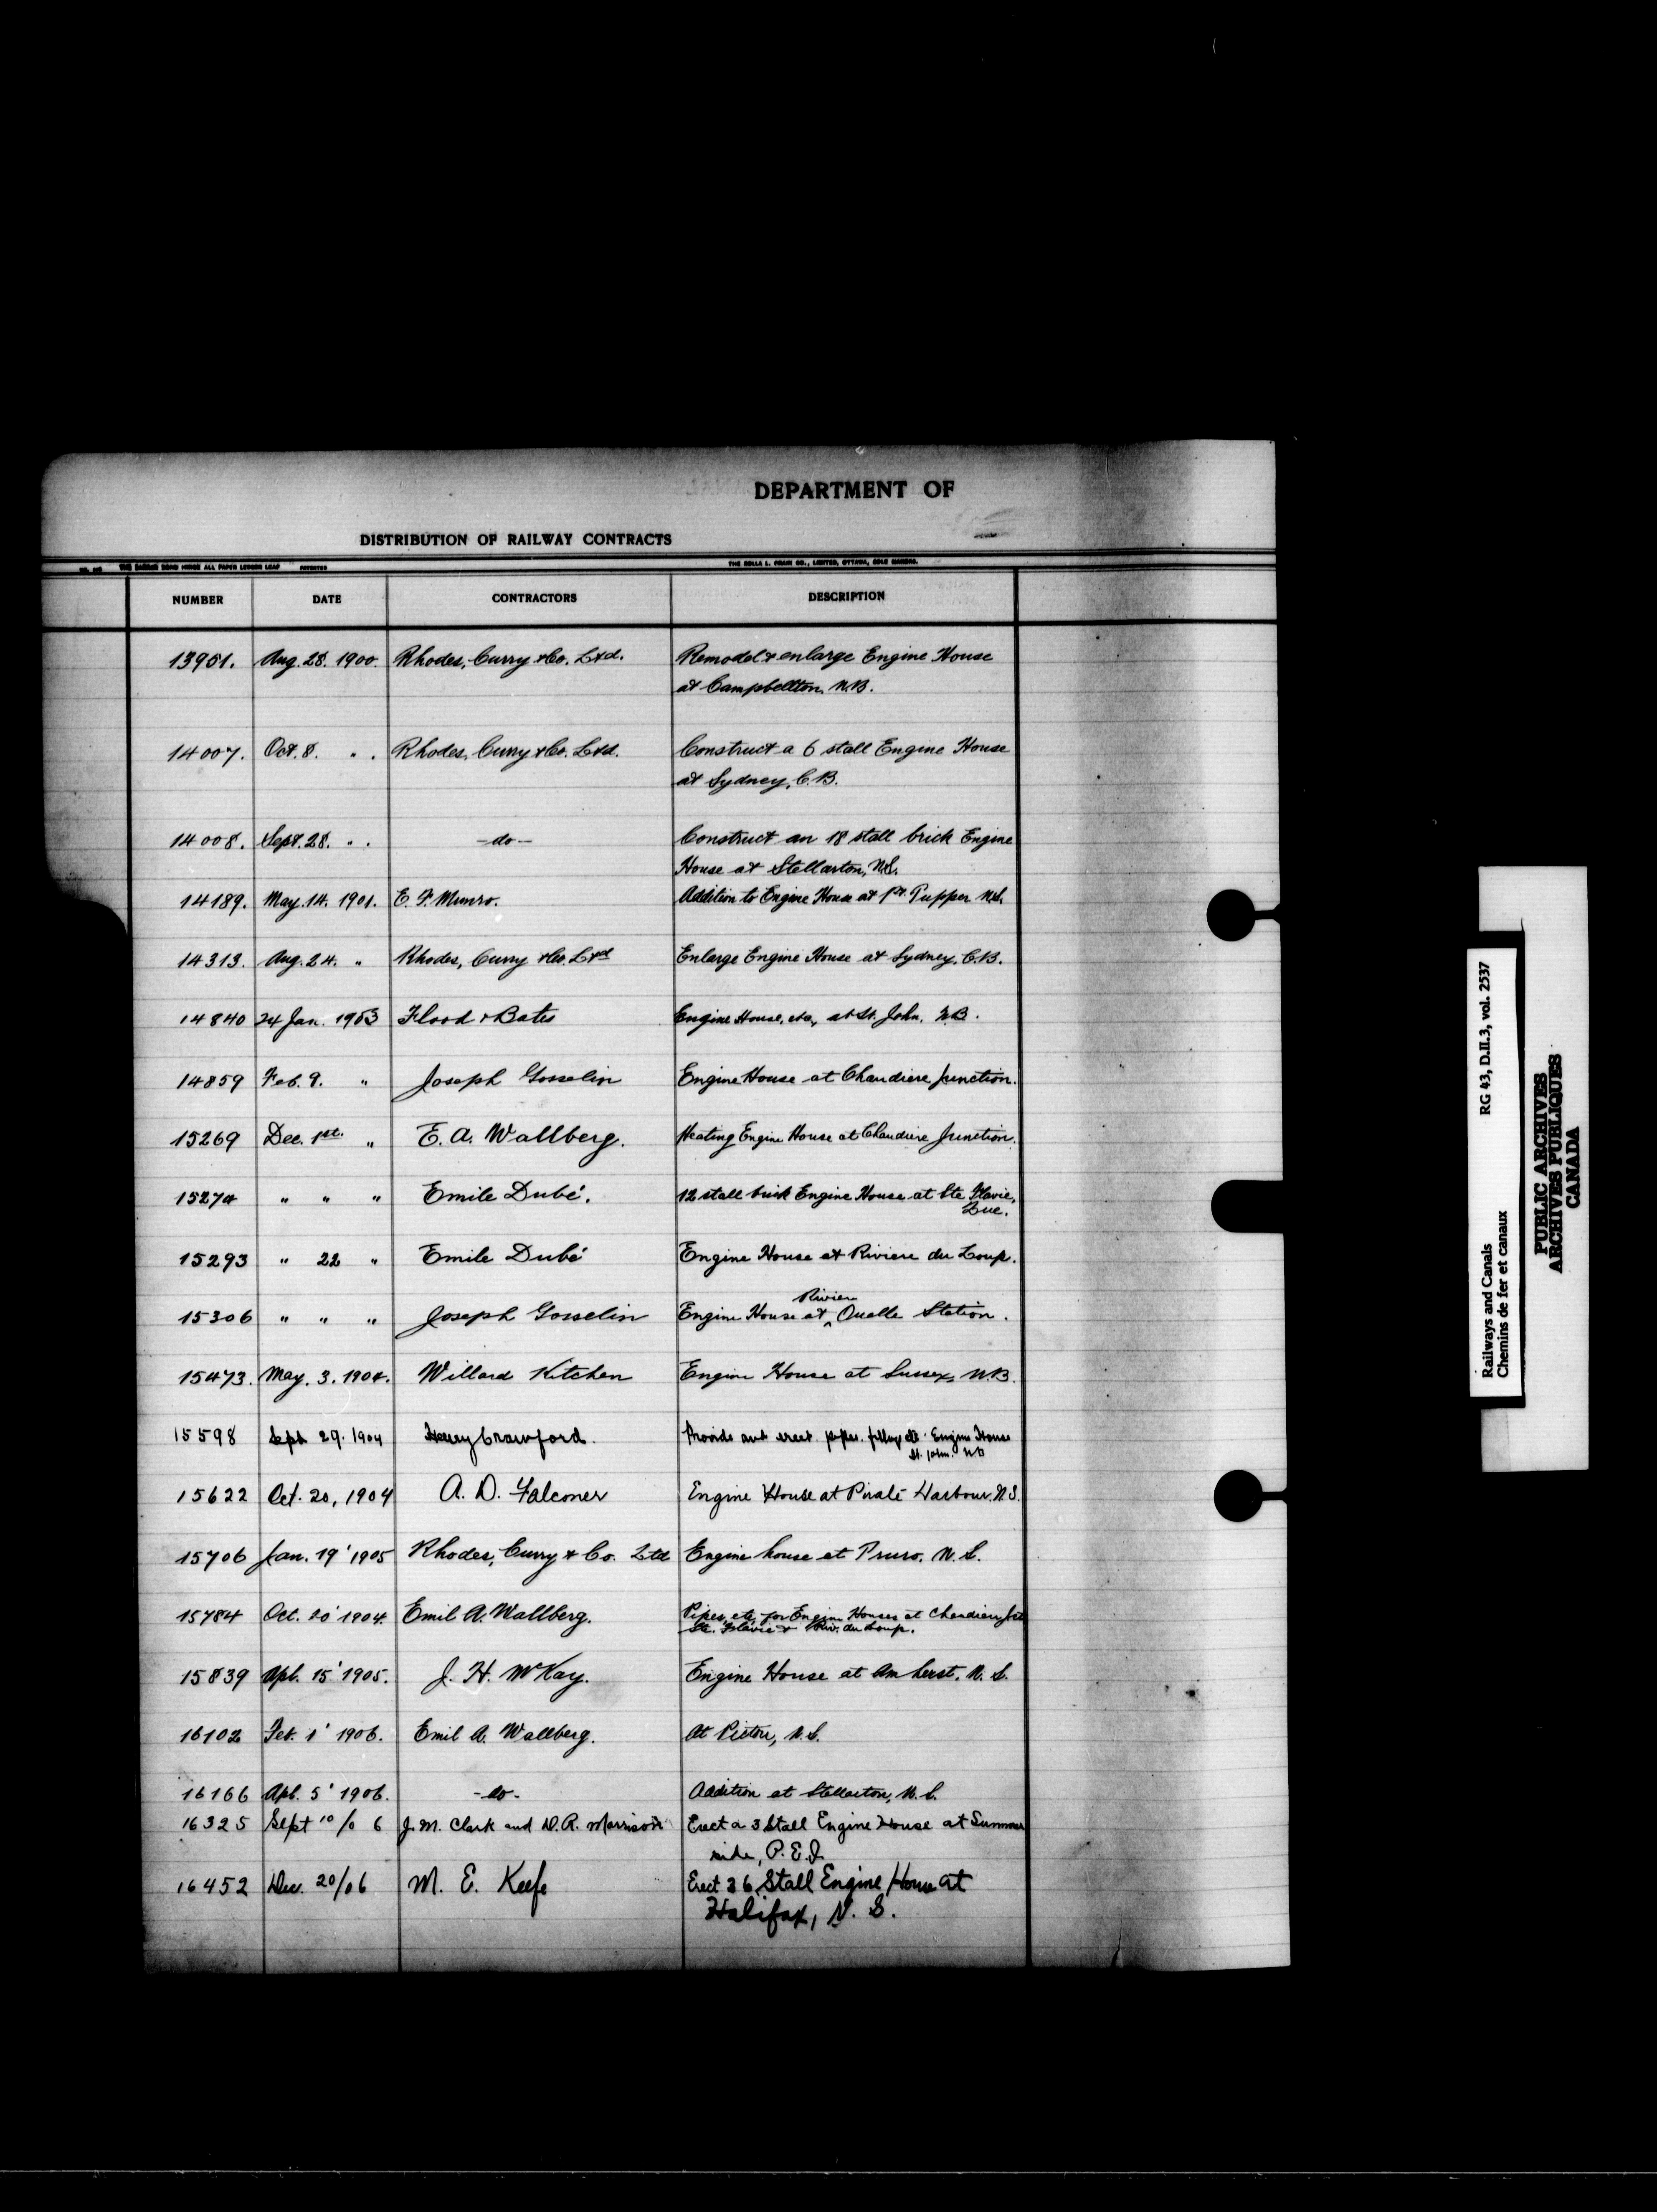 DEPARTMENT OF
DISTRIBUTION OF RAILWAY CONTRACTS
NUMBER DATE CONTRACTORS DESCRIPTION
13951. Aug. 28. 1900. Rhodes, Curry & Co. Ltd. Remodel & enlarge Engine House
at Campbellton. N.B.
14007. Oct. 8. " . Rhodes, Curry & Co. Ltd. Construct a 6 stall Engine House
at Sydney, C.B.
14008. Sept. 28. " . -do- Construct an 18 stall brick Engine
House at Stellarton, N.S.
14189. May. 14. 1901. E. F. Munro. Addition to Engine House at Pt. Tupper N.S.
14313. Aug. 24. " Rhodes, Curry & Co. Ltd Enlarge Engine House at Sydney. C.B.
14840 24 Jan. 1903 Flood & Bates Engine House, etc., at St. John, N.B.
14859 Feb. 9. " Joseph Gosselin Engine House at Chaudiere Junction.
15269 Dec. 1st. " E. A. Wallberg. Heating Engine House at Chaudiere Junction.
15274 " " " Emile Dubé. 12 stall brick Engine House at Ste Flavie,
Que.
15293 " 22 " Emile Dubé Engine House at Riviere du Loup.
Rivier
15306 " " " Joseph Gosselin Engine House at ^ Ouelle Station.
15473. May. 3. 1904. Willard Kitchen Engine House at Sussex, N.B.
15598 Sept 29. 1904 Henry Crawford. Provide and erect pipes. fittings etc. Engine House
St. John. N.B
15622 Oct. 20, 1904 A. D. Falconer Engine House at Pirate Harbour. N.S.
15706 Jan. 19' 1905 Rhodes, Curry & Co. Ltd Engine house at Truro. N. S.
15784 Oct. 20' 1904. Emil A. Wallberg. Pipes, etc, for Engine Houses at Chaudiere Jct
Ste. Flavie & Riv. du Loup.
15839 Apl. 15' 1905. J. H. McKay. Engine House at Amherst. N. S.
16102 Feb. 1' 1906. Emil A. Wallberg. At Pictou, N.S.
16166 Apl. 5' 1906. -do- Addition at Stellarton, N. S.
16325 Sept 10/06 J. M. Clark and D. R. Morrison Erect a 3 Stall Engine House at Summer
side, P.E.I.
16452 Dec. 20/06 M. E. Keefe Erect 36 Stall Engine House at
Halifax, N. S.
Railways and Canals RG 43, D.II.3, vol. 2537
Chemins de fer et canaux
PUBLIC ARCHIVES
ARCHIVES PUBLIQUES
CANADA